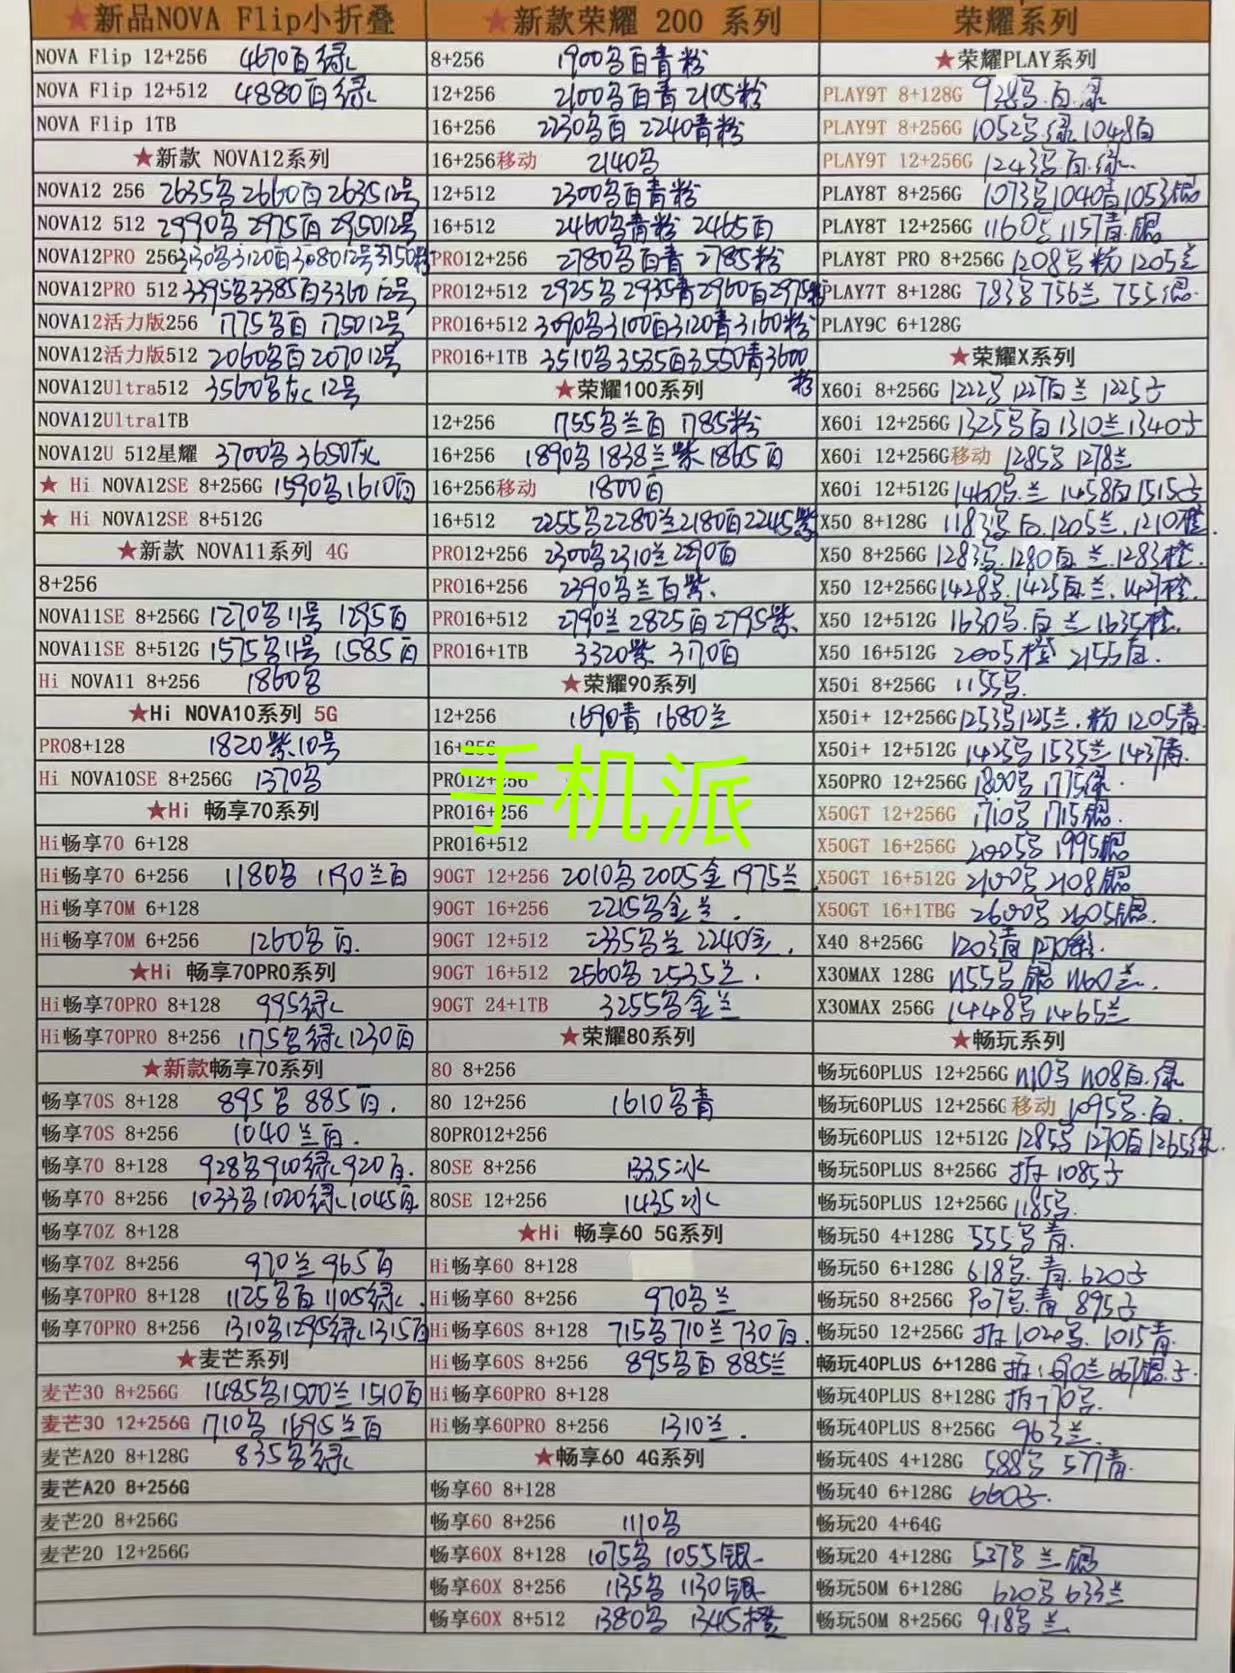 ★新品NOVA Flip小折叠
NOVA Flip 12+256 4670百绿
NOVA Flip 12+512 4880百绿
NOVA Flip 1TB
★新款 NOVA12系列
NOVA12 256 2635名2660百263512号
NOVA12 512 2990名2975百295012号
NOVA12PRO 256 3130名3120百308012号3150粉
NOVA12PRO 512 3395名3385百336012号
NOVA12活力版256 1775名百 175012号
NOVA12活力版512 2060名百207012号
NOVA12Ultra512 3560名灰12号
NOVA12Ultra1TB
NOVA12U 512星耀 3700名3650灰
★ Hi NOVA12SE 8+256G 1590名1610百
★ Hi NOVA12SE 8+512G
★新款 NOVA11系列 4G
8+256
NOVA11SE 8+256G 1270名11号 1295百
NOVA11SE 8+512G 1575名11号 1585百
Hi NOVA11 8+256 1860名
★Hi NOVA10系列 5G
PRO8+128 1820紫10号
Hi NOVA10SE 8+256G 1370名
★Hi 畅享70系列
Hi畅享70 6+128
Hi畅享70 6+256 1180名 1190兰百
Hi畅享70M 6+128
Hi畅享70M 6+256 1260名百.
★Hi 畅享70PRO系列
Hi畅享70PRO 8+128 995绿
Hi畅享70PRO 8+256 1175名绿1230百
★新款畅享70系列
畅享70S 8+128 895名 885百.
畅享70S 8+256 1040兰百.
畅享70 8+128 928名910绿920百.
畅享70 8+256 1033名1020绿1045百
畅享70Z 8+128
畅享70Z 8+256 970兰 965百
畅享70PRO 8+128 1125名百1105绿.
畅享70PRO 8+256 1310名1295绿1315百
★麦芒系列
麦芒30 8+256G 1485名1500兰1510百
麦芒30 12+256G 1710名 1695兰百
麦芒A20 8+128G 835名绿
麦芒A20 8+256G
麦芒20 8+256G
麦芒20 12+256G
★新款荣耀 200 系列
8+256 1900名百青粉
12+256 2100名百青 2105粉
16+256 2230名百 2240青粉
16+256移动 2140名
12+512 2300名百青粉
16+512 2460名青粉 2465百
PRO12+256 2780名百青 2785粉
PRO12+512 2925名2935青2960百2975粉
PRO16+512 3090名3100百3120青3160粉
PRO16+1TB 3510名3535百3550青3600粉
★荣耀100系列
12+256 1755名兰百 1785粉
16+256 1890名1838兰紫1865百
16+256移动 1800百
16+512 2255名2280兰2180百2245紫
PRO12+256 2300名2310兰2290百
PRO16+256 2390名兰百紫.
PRO16+512 2790兰 2825百 2795紫.
PRO16+1TB 3320紫 3170百
★荣耀90系列
12+256 1690青 1680兰
16+256
手机派
PRO12+256
PRO16+256
PRO16+512
90GT 12+256 2010名2005金1975兰
90GT 16+256 2215名金兰.
90GT 12+512 2235名兰 2240金.
90GT 16+512 2560名2535兰.
90GT 24+1TB 3255名金兰
★荣耀80系列
80 8+256
80 12+256 1610名青
80PRO12+256
80SE 8+256 1335冰
80SE 12+256 1435冰
★Hi 畅享60 5G系列
Hi畅享60 8+128
Hi畅享60 8+256 970名兰
Hi畅享60S 8+128 715名710兰730百.
Hi畅享60S 8+256 895名百 885兰
Hi畅享60PRO 8+128
Hi畅享60PRO 8+256 1310兰.
★畅享60 4G系列
畅享60 8+128
畅享60 8+256 1110名
畅享60X 8+128 1075名 1055银
畅享60X 8+256 1135名 1130银
畅享60X 8+512 1380名 1345橙
荣耀系列
★荣耀PLAY系列
PLAY9T 8+128G 928名.百.绿
PLAY9T 8+256G 1052名.绿1048百
PLAY9T 12+256G 1243名.百.绿.
PLAY8T 8+256G 1073名1040青1053银
PLAY8T 12+256G 1160名1157青.银
PLAY8T PRO 8+256G 1208名粉1205兰
PLAY7T 8+128G 783名756兰 755银.
PLAY9C 6+128G
★荣耀X系列
X60i 8+256G 1222名1227百兰1225子
X60i 12+256G 1325名百1310兰1340子
X60i 12+256G移动 1285名1278兰
X60i 12+512G 1460名.兰 1458百1515子
X50 8+128G 1183名百.1205兰.1210橙.
X50 8+256G 1283名.1280百.兰.1283橙.
X50 12+256G 1428名.1425百.兰.1427橙.
X50 12+512G 1630名.百.兰1635橙.
X50 16+512G 2005橙 2155百.
X50i 8+256G 1155名.
X50i+ 12+256G 1253名1225兰.粉1205青.
X50i+ 12+512G 1425名1535兰1437青.
X50PRO 12+256G 1800名1775绿.
X50GT 12+256G 1710名1715银
X50GT 16+256G 2005名1995银
X50GT 16+512G 2100名2108银
X50GT 16+1TBG 2600名2605银.
X40 8+256G 1203青
X30MAX 128G 1155名银1160兰.
X30MAX 256G 1448名1465兰
★畅玩系列
畅玩60PLUS 12+256G 1110名1108百.绿
畅玩60PLUS 12+256G移动 1095名.百.
畅玩60PLUS 12+512G 1285名1270百1265绿.
畅玩50PLUS 8+256G 拆1085子
畅玩50PLUS 12+256G 1185名.
畅玩50 4+128G 555名青.
畅玩50 6+128G 618名.青.620子
畅玩50 8+256G 907名.青 895子
畅玩50 12+256G 拆1020名.1015青.
畅玩40PLUS 6+128G
畅玩40PLUS 8+128G 拆770名.
畅玩40PLUS 8+256G 963兰.
畅玩40S 4+128G 588名577青.
畅玩40 6+128G 660子.
畅玩20 4+64G
畅玩20 4+128G 537名兰银
畅玩50M 6+128G 620名633兰
畅玩50M 8+256G 918名兰